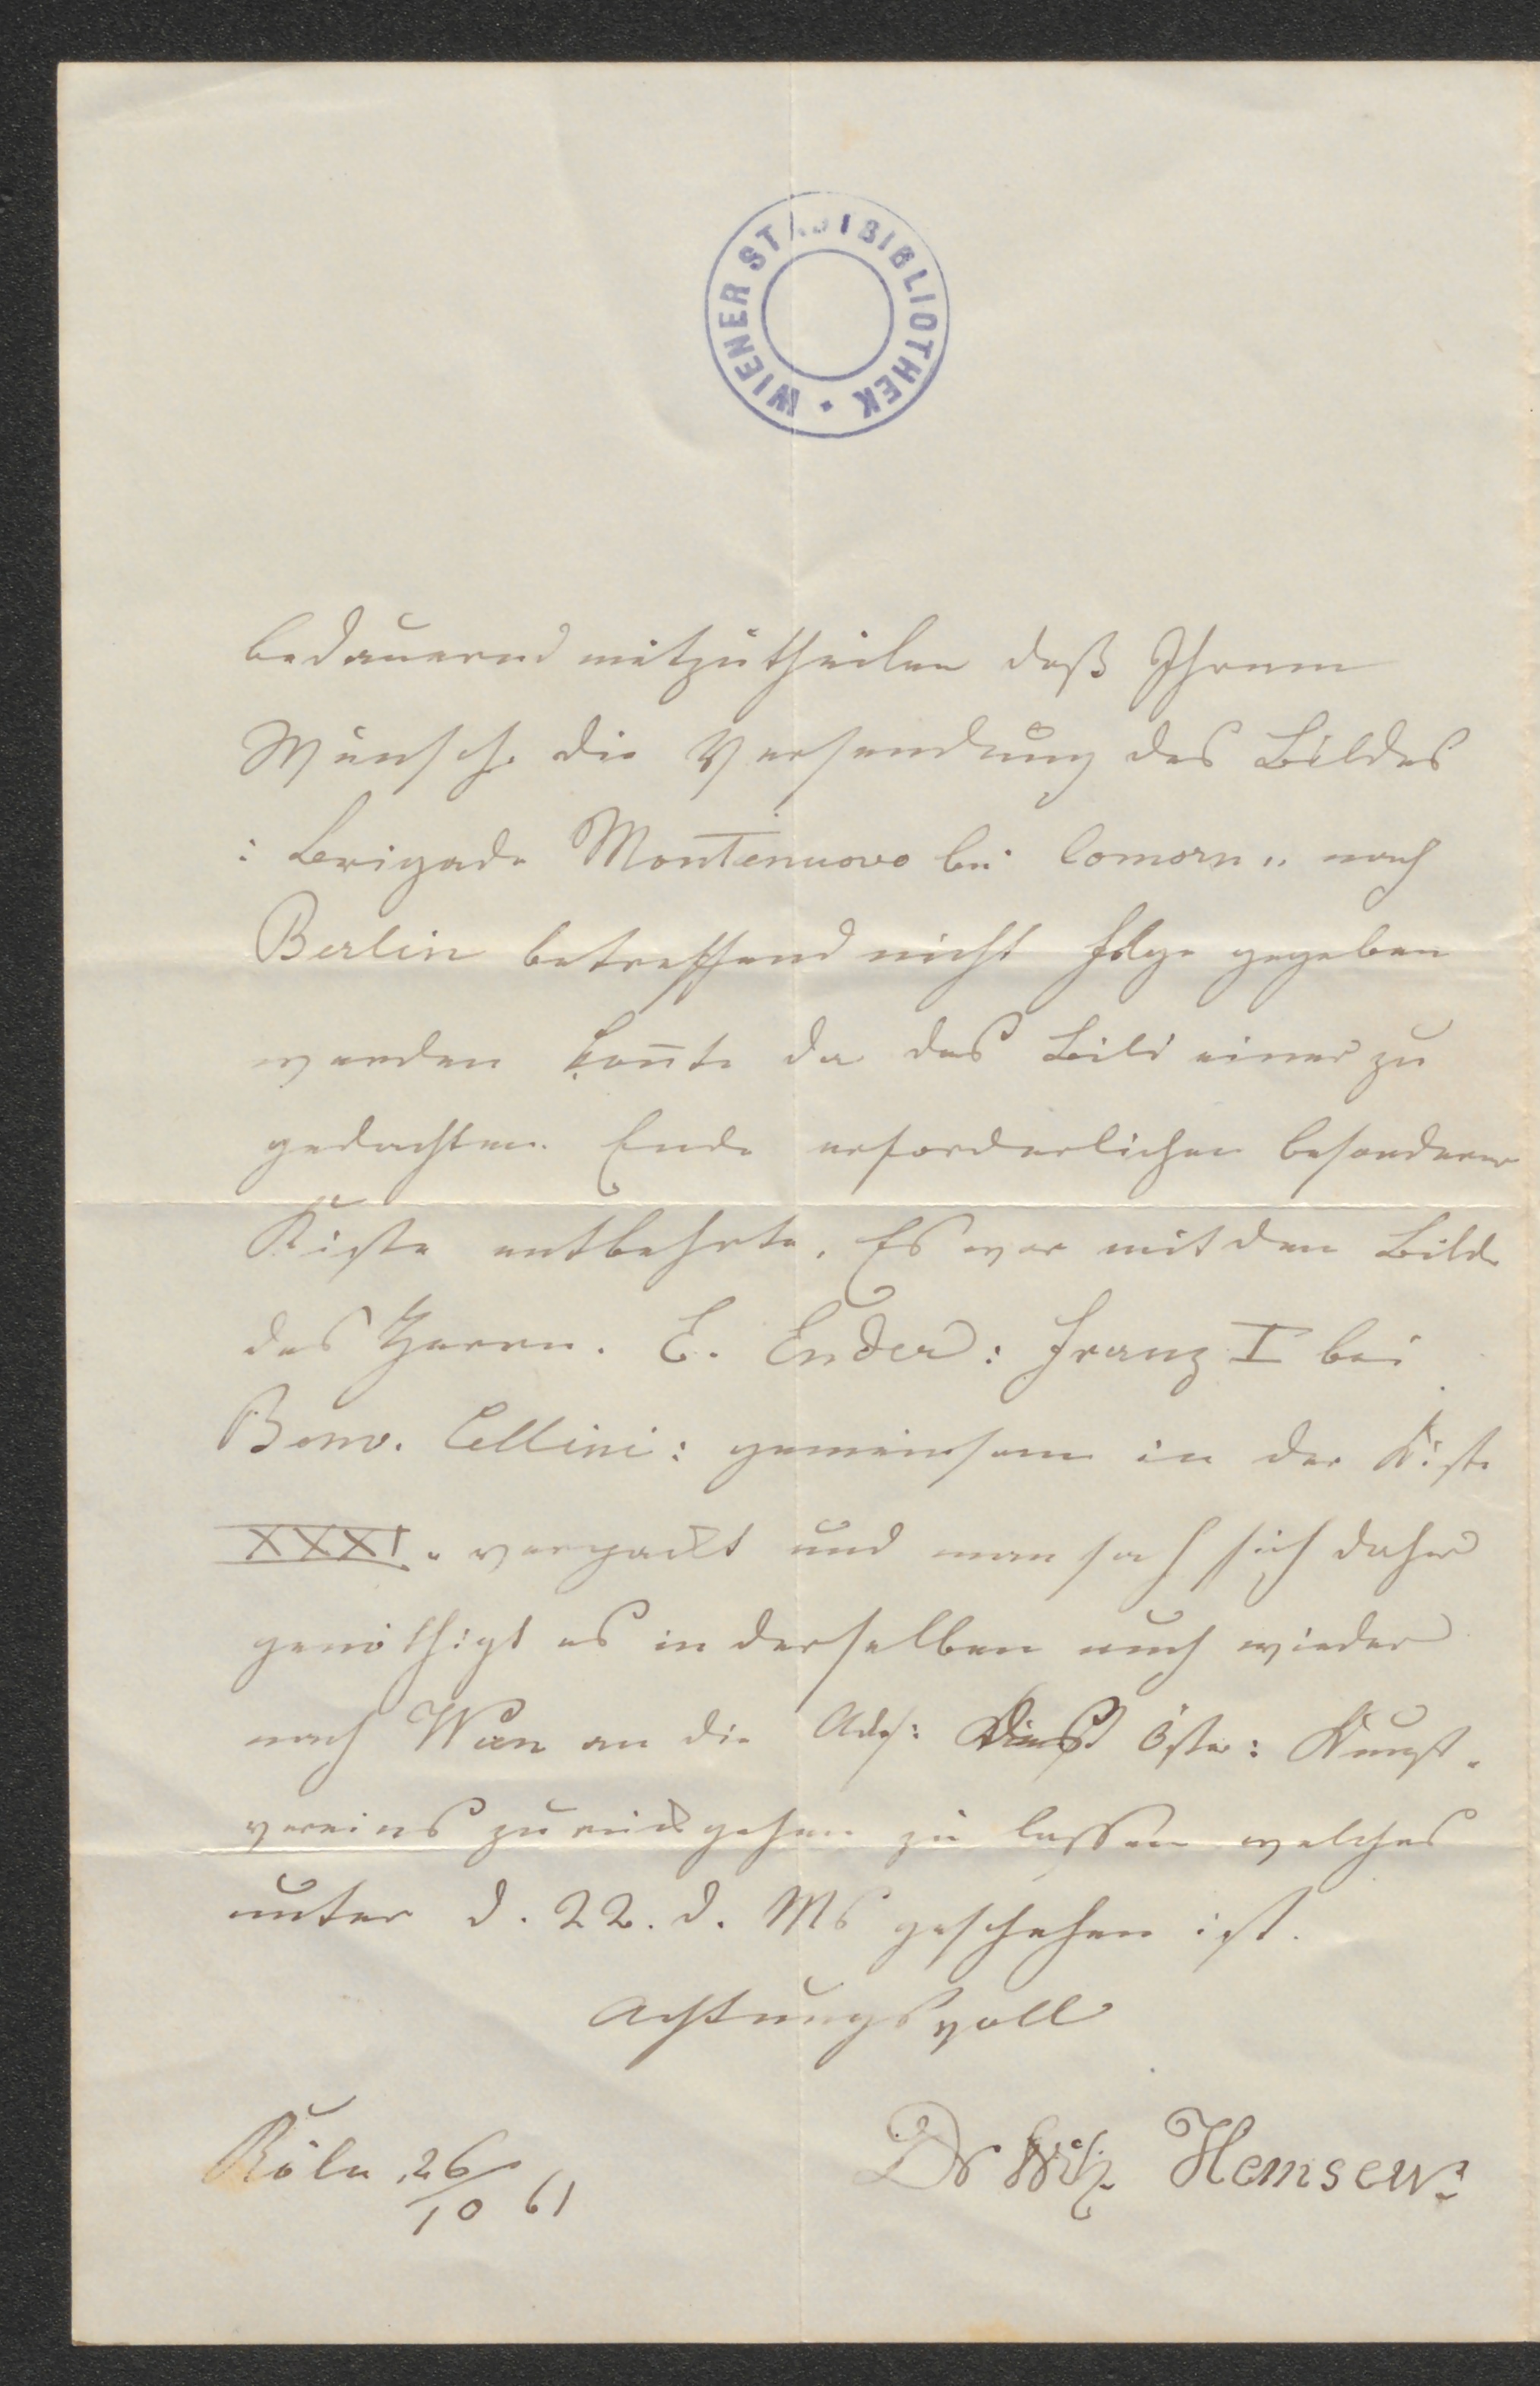 WIENER STADTBIBLIOTHEK
bedauernd mitzutheilen daß Ihrem
Wunsche die Versendung des Bildes
: Brigade Montenuovo bei Comorn „ nach
Berlin betreffend nicht Folge gegeben
werden kon̄te da das Bild einer zu
gedachtem Ende erforderlichen besonderen
Kiste entbehrte. Es war mit dem Bilde
des Herrn. E. Ender: Franz I bei
Benv. Cellini: gemeinsam in der Kiste
XXXI. verpackt und man sah sich daher
genöthigt es in derselben auch wieder
nach Wien an die Adr: öster: Kunst-
vereins zurückgehen zu lassen welches
unter d. 22. d. Ms geschehen ist.
Achtungsvoll
Dr Wilh. Hemsen
Köln 26/10 61